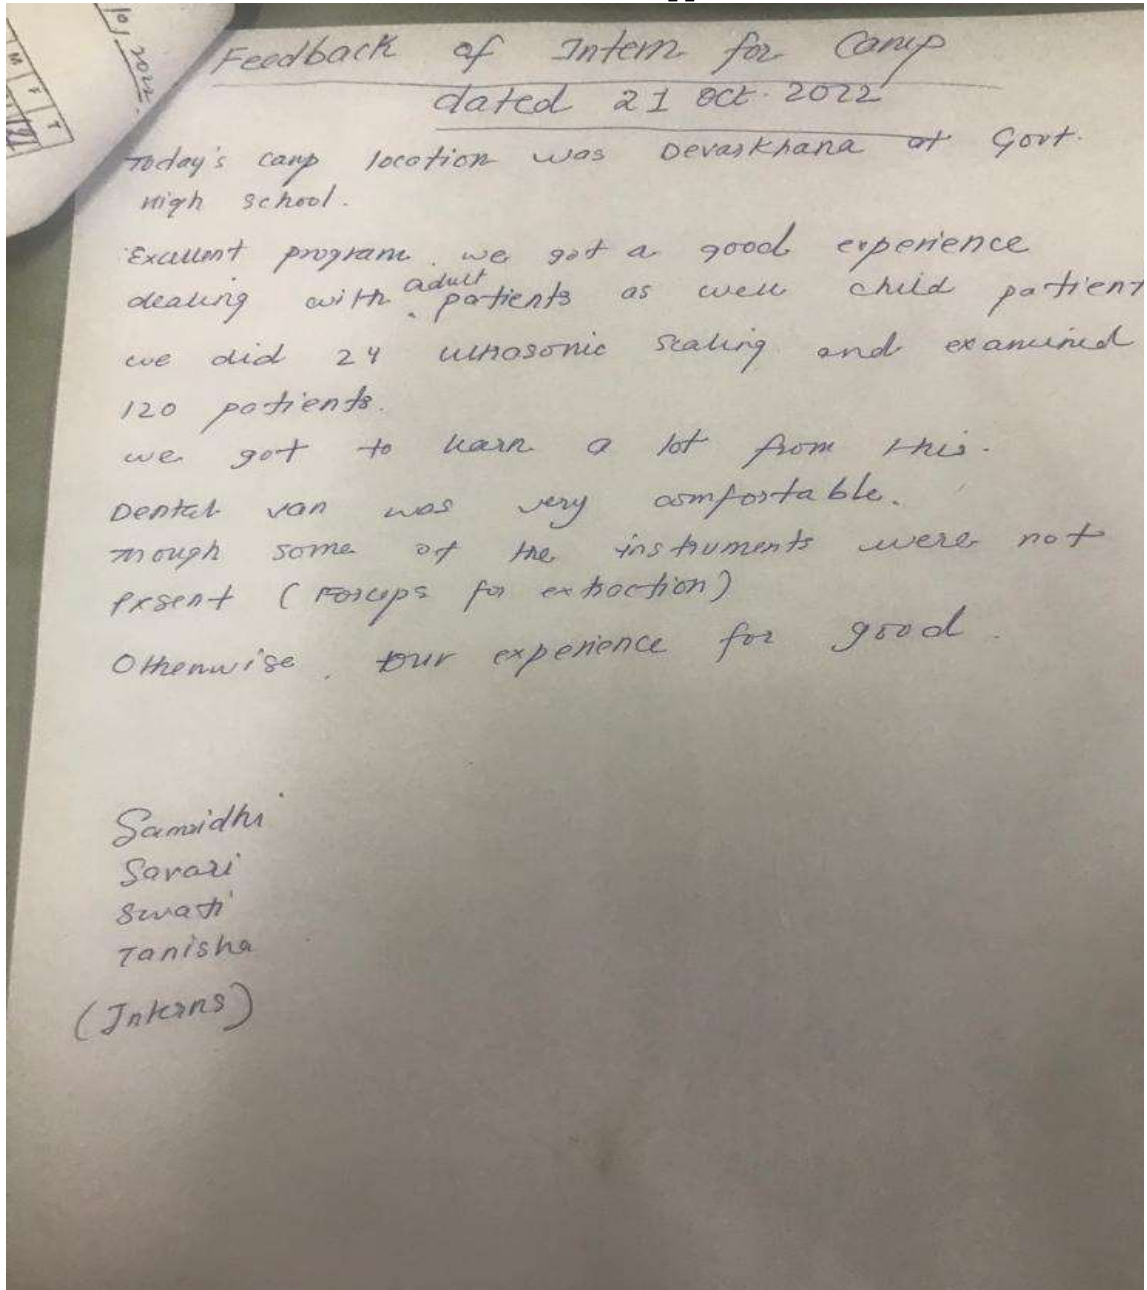 10/2022.
M F T
Feedback of Intern for Camp
dated 21 Oct. 2022
Today's camp location was Devaskhana at Govt.
High school.
Excellent program. we got a good experience
dealing with adult patients as well child patient
we did 24 ultrasonic scaling and examined
120 patients.
we got to learn a lot from this.
Dental van was very comfortable.
Though some of the instruments were not
present (Forceps for extraction)
Otherwise, our experience for good.
Samridhi
Savari
Swati
Tanisha
(Interns)